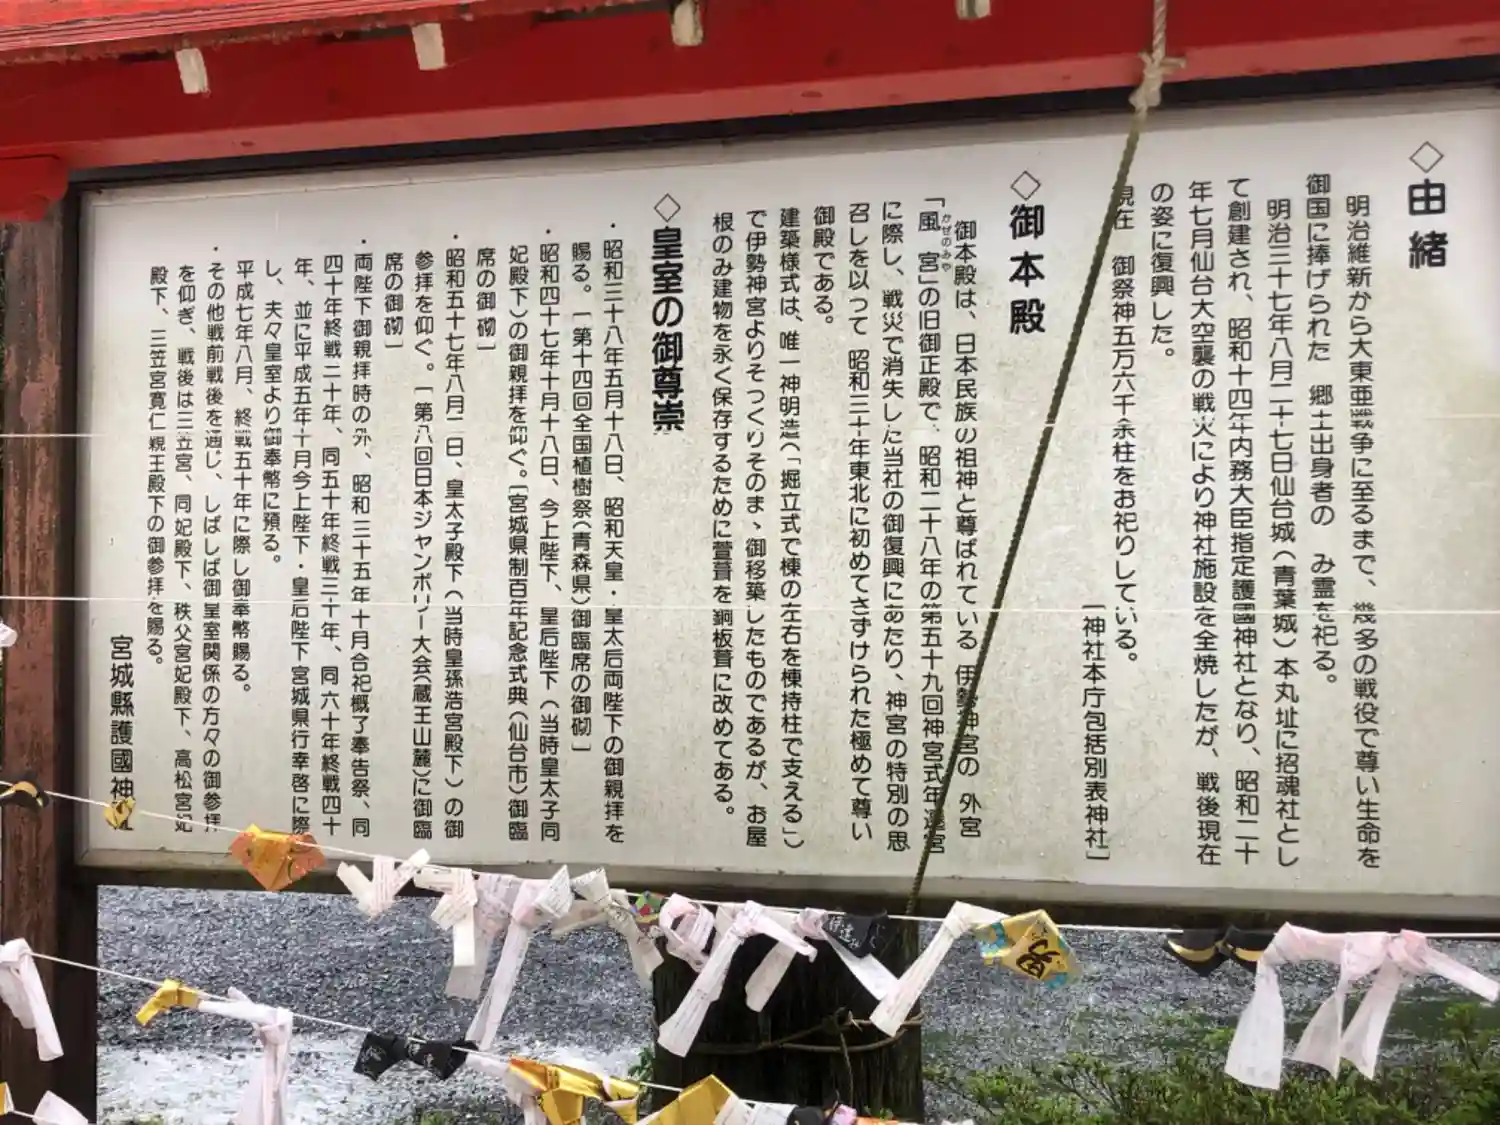 ◇由緒
明治維新から大東亜戦争に至るまで、幾多の戦役で尊い生命を
御国に捧げられた 郷土出身者の み霊を祀る。
明治三十七年八月二十七日仙台城(青葉城)本丸址に招魂社とし
て創建され、昭和十四年内務大臣指定護國神社となり、昭和二十
年七月仙台大空襲の戦火により神社施設を全焼したが、戦後現在
の姿に復興した。
現在 御祭神五万六千余柱をお祀りしている。
[神社本庁包括別表神社]
◇御本殿
御本殿は、日本民族の祖神と尊ばれている 伊勢神宮の 外宮
「風宮」の旧御正殿で、昭和二十八年の第五十九回神宮式年遷宮
かぜのみや
に際し、戦災で消失した当社の御復興にあたり、神宮の特別の思
召しを以って 昭和三十年東北に初めてさずけられた極めて尊い
御殿である。
建築様式は、唯一神明造(「掘立式で棟の左右を棟持柱で支える」)
で伊勢神宮よりそっくりそのまゝ御移築したものであるが、お屋
根のみ建物を永く保存するために萱葺を銅板葺に改めてある。
◇皇室の御尊崇
・昭和三十八年五月十八日、昭和天皇・皇太后両陛下の御親拝を
賜る。[第十四回全国植樹祭(青森県)御臨席の御砌]
・昭和四十七年十月十八日、今上陛下、皇后陛下(当時皇太子同
妃殿下)の御親拝を仰ぐ。[宮城県制百年記念式典(仙台市)御臨
席の御砌]
・昭和五十七年八月二日、皇太子殿下(当時皇孫浩宮殿下)の御
参拝を仰ぐ。[第八回日本ジャンボリー大会(蔵王山麓)に御臨
席の御砌]
・両陛下御親拝時の外、昭和三十五年十月合祀概了奉告祭、同
四十年終戦二十年、同五十年終戦三十年、同六十年終戦四十
年、並に平成五年十月今上陛下・皇后陛下宮城県行幸啓に際
し、夫々皇室より御奉幣に預る。
平成七年八月、終戦五十年に際し御奉幣賜る。
・その他戦前戦後を通じ、しばしば御皇室関係の方々の御参拝
を仰ぎ、戦後は三笠宮、同妃殿下、秩父宮妃殿下、高松宮妃
殿下、三笠宮寛仁親王殿下の御参拝を賜る。
宮城縣護國神社